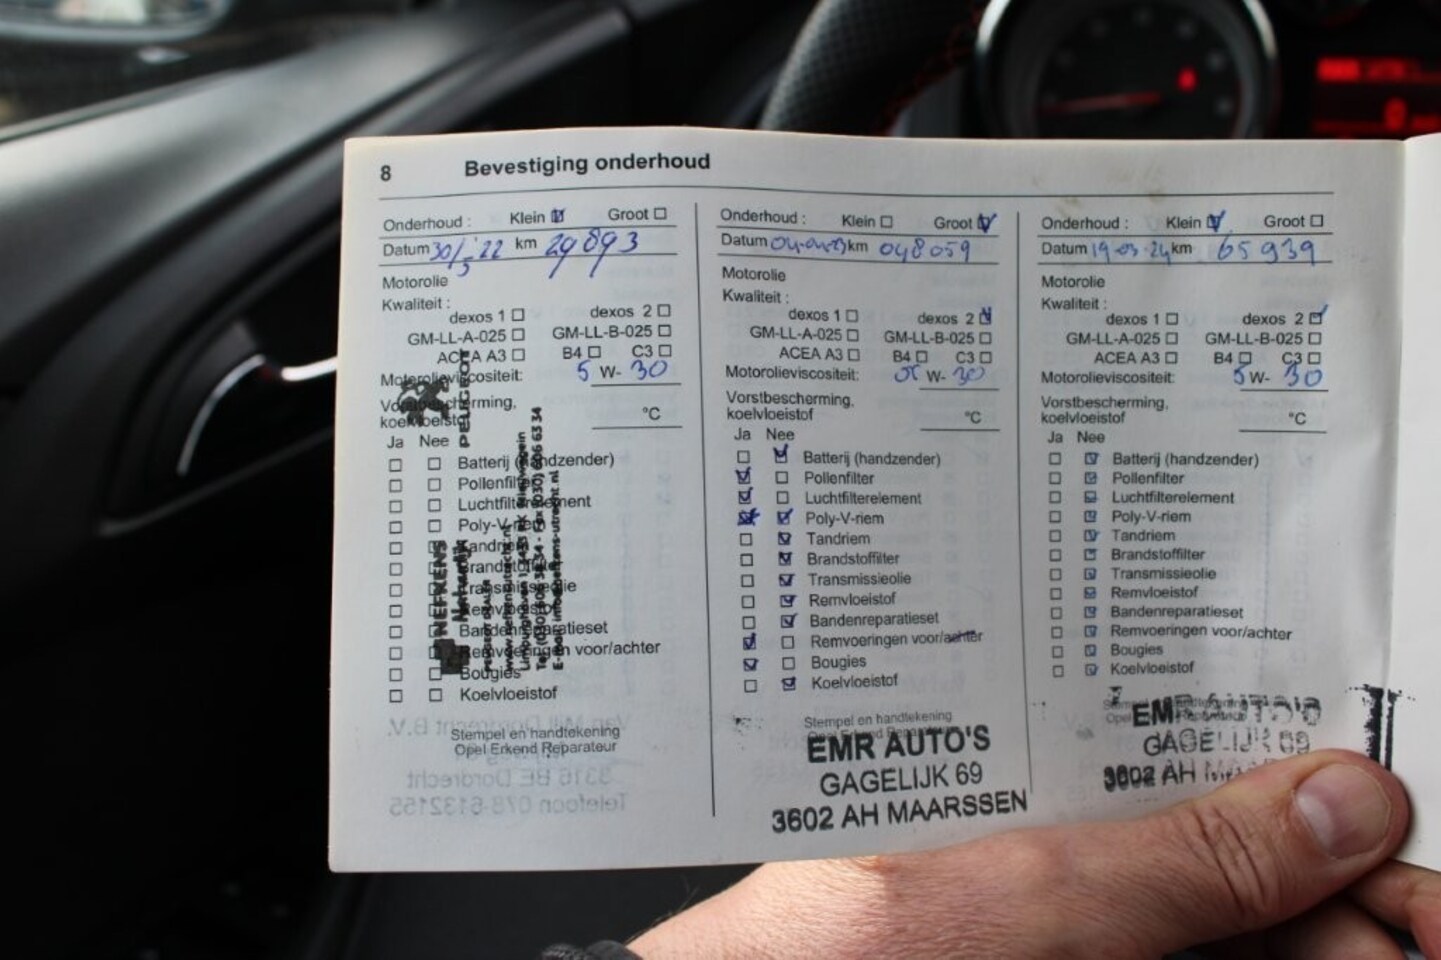 8 Bevestiging onderhoud
Onderhoud : Klein Groot
Datum 30/5 '22 km 29893
Motorolie
Kwaliteit :
dexos 1 dexos 2
GM-LL-A-025 GM-LL-B-025
ACEA A3 B4 C3
Motorolieviscositeit: 5 W- 30
Vorstbescherming,
koelvloeistof °C
Ja Nee
Batterij (handzender)
Pollenfilter
Luchtfilterelement
Poly-V-riem
Tandriem
Brandstoffilter
Transmissieolie
Remvloeistof
Bandenreparatieset
Remvoeringen voor/achter
Bougies
Koelvloeistof
Stempel en handtekening
Opel Erkend Reparateur
PEUGEOT
NEFKENS
PEUGEOT DEALER
Onderhoud : Klein Groot
Datum 04-04-23 km 048059
Motorolie
Kwaliteit :
dexos 1 dexos 2
GM-LL-A-025 GM-LL-B-025
ACEA A3 B4 C3
Motorolieviscositeit: W- 30
Vorstbescherming,
koelvloeistof °C
Ja Nee
Batterij (handzender)
Pollenfilter
Luchtfilterelement
Poly-V-riem
Tandriem
Brandstoffilter
Transmissieolie
Remvloeistof
Bandenreparatieset
Remvoeringen voor/achter
Bougies
Koelvloeistof
Stempel en handtekening
EMR AUTO'S
GAGELIJK 69
3602 AH MAARSSEN
Onderhoud : Klein Groot
Datum 19-03-24 km 65939
Motorolie
Kwaliteit :
dexos 1 dexos 2
GM-LL-A-025 GM-LL-B-025
ACEA A3 B4 C3
Motorolieviscositeit: 5 W- 30
Vorstbescherming,
koelvloeistof °C
Ja Nee
Batterij (handzender)
Pollenfilter
Luchtfilterelement
Poly-V-riem
Tandriem
Brandstoffilter
Transmissieolie
Remvloeistof
Bandenreparatieset
Remvoeringen voor/achter
Bougies
Koelvloeistof
EMR AUTO'S
GAGELIJK 69
3602 AH